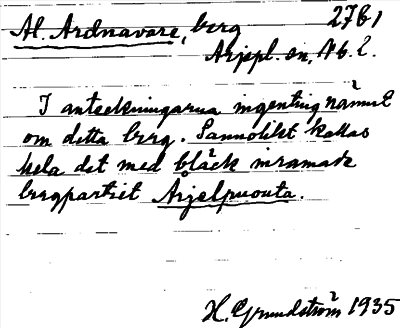 2761
Al. Ardnavare, berg
Arjepl. sn, Nb. l.
I anteckningarna ingenting nämnt
om detta berg. Sannolikt kallas
hela det med bläck inramade
bergpartiet Årjelpuouta.
H. Grundström 1935